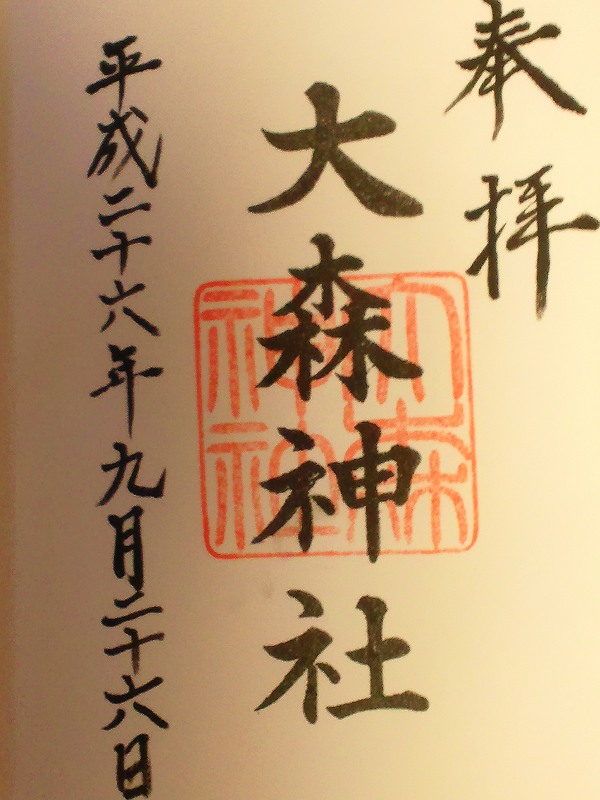 奉拝
大森神社
大森神社
平成二十六年九月二十六日